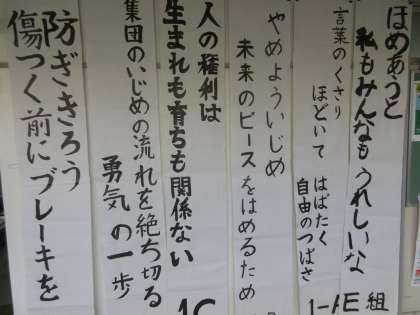 ほめあうと
私もみんなもうれしいな
言葉のくさり
ほどいて はばたく
自由のつばさ
1-AE組
やめよういじめ
未来のピースをはめるため
人の権利は
生まれも育ちも関係ない
1C
集団のいじめの流れを絶ち切る
勇気の一歩
防ぎきろう
傷つく前にブレーキを